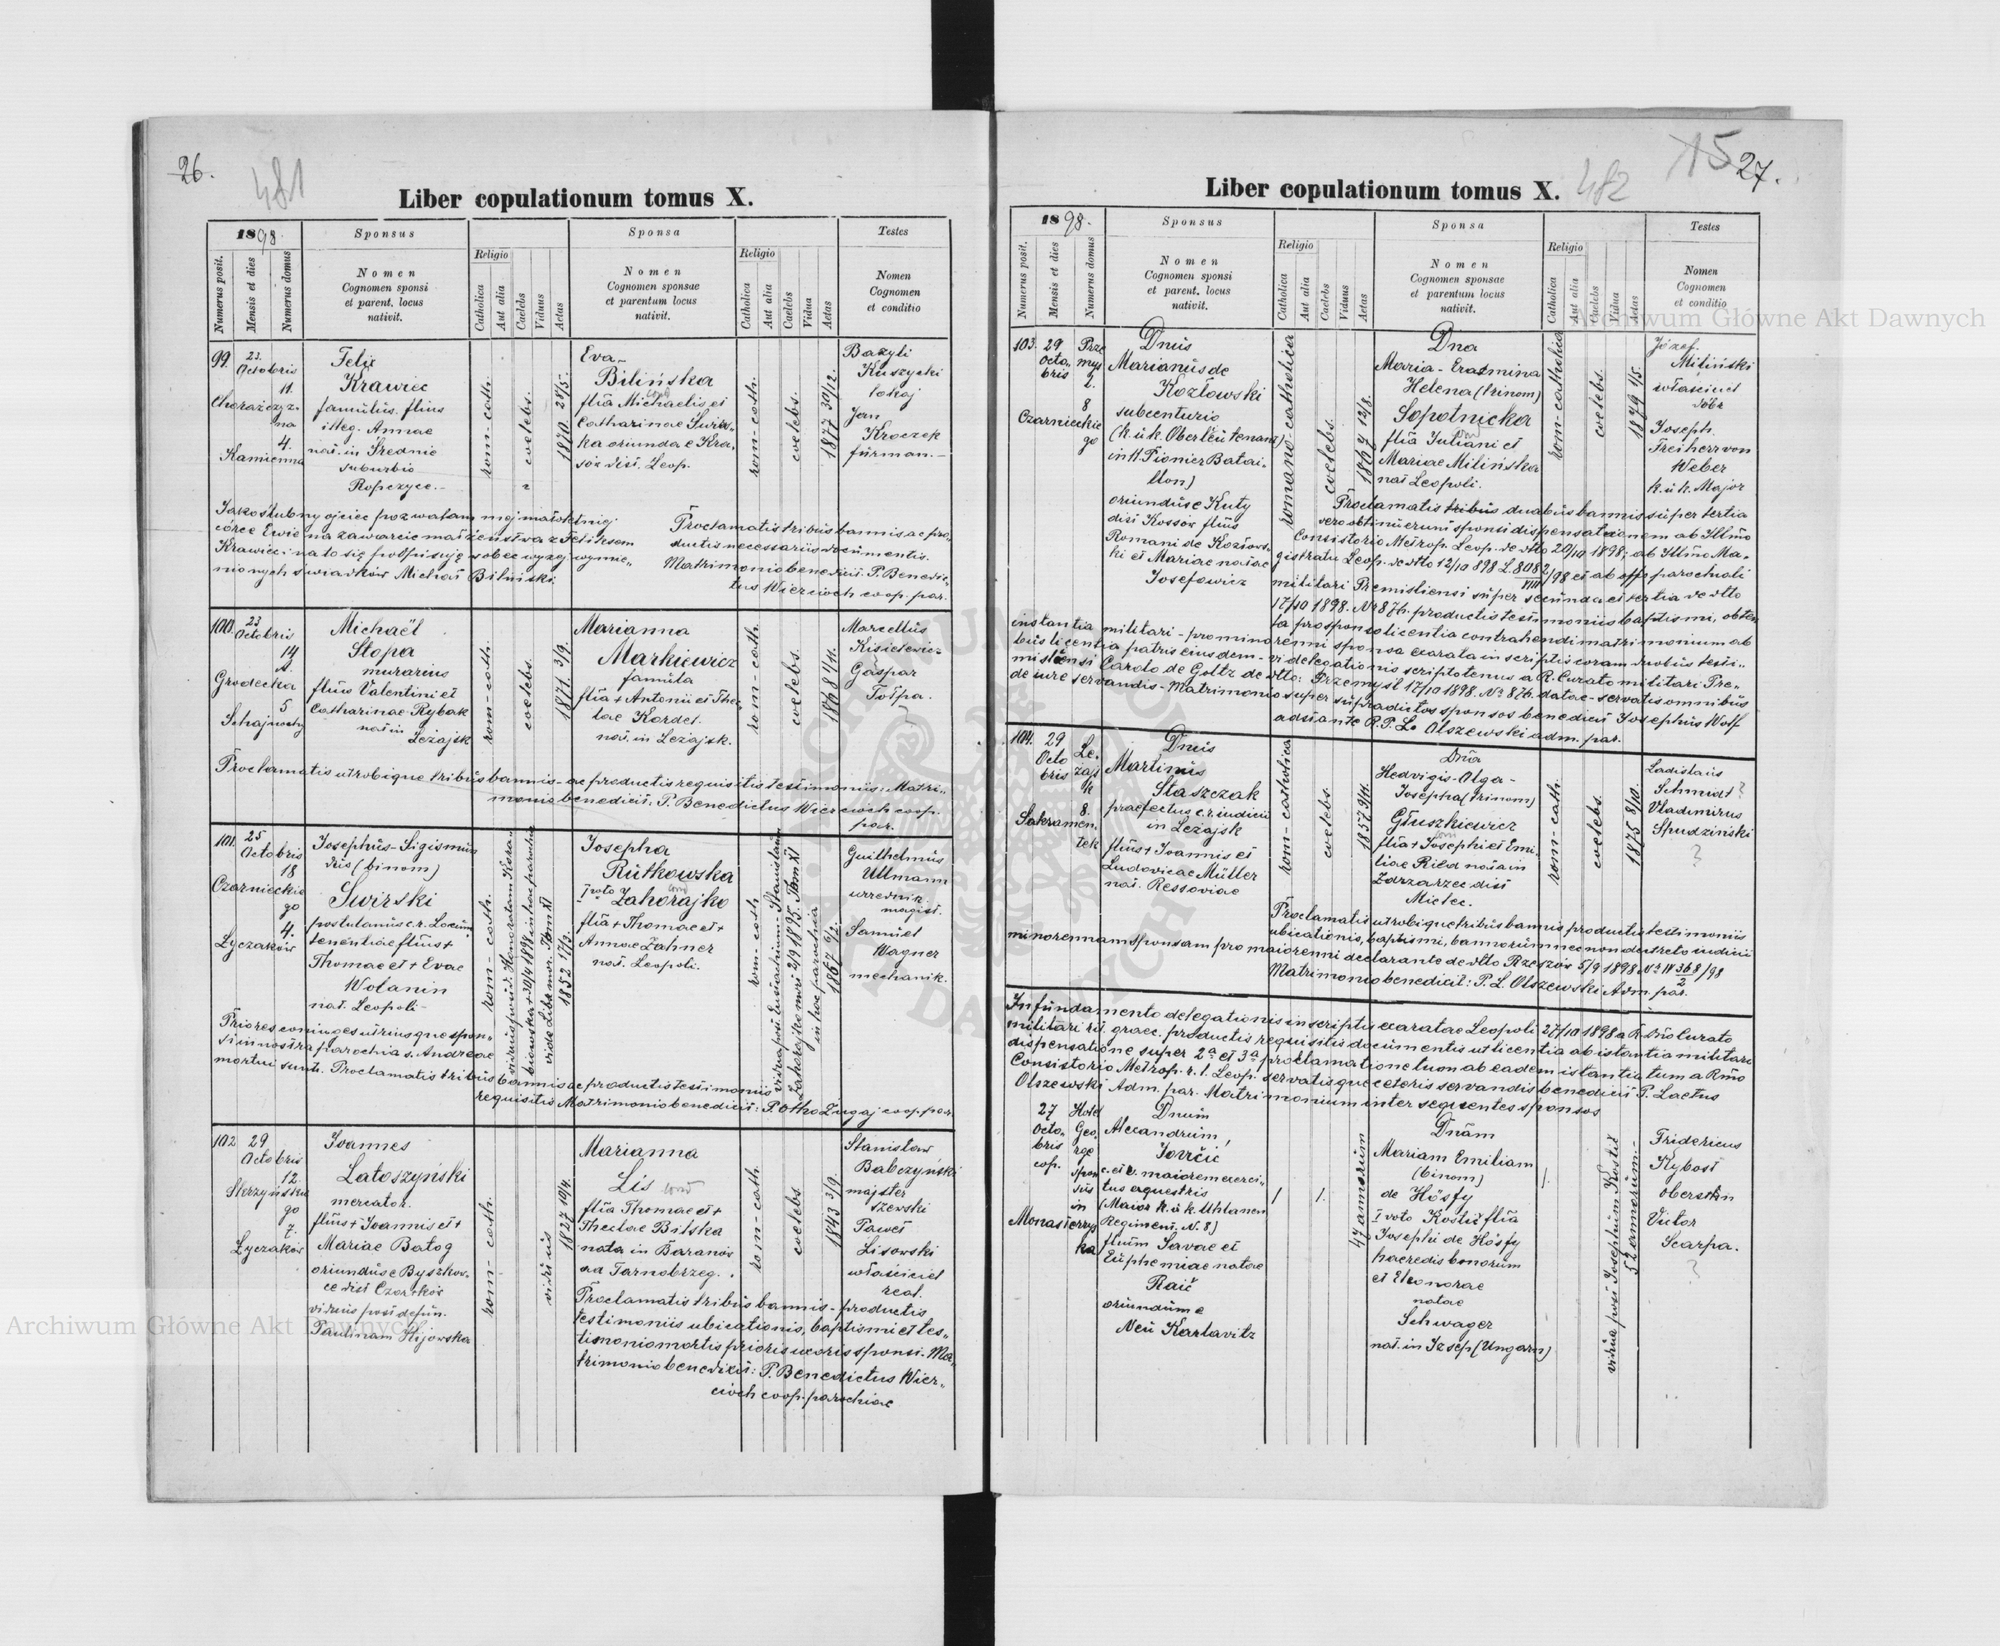 26.
481
Liber copulationum tomus X.
1898.
Sponsus
Sponsa
Testes
Numerus posit.
Mensis et dies
Numerus domus
Nomen
Cognomen sponsi
et parent. locus
nativit.
Religio
Catholica
Aut alia
Caelebs
Viduus
Aetas
Nomen
Cognomen sponsae
et parentum locus
nativit.
Religio
Catholica
Aut alia
Caelebs
Vidua
Aetas
Nomen
Cognomen
et conditio
99.
23.
Octobris
11.
Chorążczyz-
na
4.
Kamienna
Felix
Krawiec
famulus. filius
illeg. Annae
nat. in Średnie
suburbio
Ropczyce.-
rom-cath.
coelebs.
1870 24/5.
Eva
Bilińska
filia Michaelis et
Catharinae Świrs-
ka oriunda e Kra-
sów dist. Leop.
rom-cath.
coelebs.
1877 30/12.
Bazyli
Kuszycki
lokaj
Jan
Kroczek
furman.-
Jako ślubny ojciec pozwalam mej małoletniej
córce Ewie na zawarcie małżeństwa z Feliksem
Krawiec i na to się podpisuję wobec wyżej wymie-
nionych świadków Michał Biliński
Proclamatis tribus bannis ac pro-
ductis necessariis documentis.
Matrimonio benedixit P. Benedic-
tus Wiercioch coop. par.
100.
23
Octobris
14
A.
Grodecka
5
Schajnochy
Michaël
Stopa
murarius
filius Valentini et
Catharinae Rybak
nat in
Leżajsk
rom-cath.
coelebs.
1871. 3/9.
Marianna
Markiewicz
famula
filia + Antonii et The-
clae Kordel.
nat. in Leżajsk.
rom-cath.
coelebs.
1868 8/11.
Marcellus
Kisielewicz
Gaspar
Tołpa.
Proclamatis utrobique tribus bannis- ac productis requisitis testimoniis. Matri-
monio benedixit. P. Benedictus Wiercioch coop.
par.
101.
25
Octobris
18
Czarnieckie
go
4.
Łyczaków
Josephus-Sigismun
dus (binom)
Świrski
postulanus c. r. Locum
tenentiae filius +
Thomae et + Evae
Wolanin
nat. Leopoli-
rom-cath.
1852 17/3.
Josepha
Rutkowska
I voto Zahorajko
filia + Thomae et +
Annae Zahner
nat. Leopoli.
rom-cath
1867 6/2.
in hac parochia
Guilhelmus
Ullmann
urzędnik
magist.
Samuel
Wagner
mechanik.
Priores coniuges utriusque spon-
si in nostra parochia s. Andreae
mortui sunt. Proclamatis tribus bannis ac productis testimoniis
requisitis Matrimonio benedixit: P. Otho Zugaj coop par.
102
29
Octobris
12.
Skrzyńskie
go
7.
Łyczaków
Joannes
Latoszyński
mercator.
filius + Joannis et +
Mariae Batog
oriundus e Byszkow-
ce dist Czortków
viduus post defun.
Paulinam Kijowska
rom-cath.
viduus
1827 10/4.
Marianna
Lis
filia Thomae et +
Theclae Bilska
nata in Baranów
ad Tarnobrzeg.
rom-cath.
coelebs
1843 3/9.
Stanisław
Babczyński
majster
szewski
Paweł
Lisowski
właściciel
real.
Proclamatis tribus bannis- productis
testimoniis ubicationis, baptismi et tes-
timonio mortis prioris uxoris sponsi. Ma-
trimonio benedixit: P. Benedictus Wier-
cioch coop. parochiae
15
27.
482
Liber copulationum tomus X.
1898.
Sponsus
Sponsa
Testes
Numerus posit.
Mensis et dies
Numerus domus
Nomen
Cognomen sponsi
et parent. locus
nativit.
Religio
Catholica
Aut alia
Caelebs
Viduus
Aetas
Nomen
Cognomen sponsae
et parentum locus
nativit.
Religio
Catholica
Aut alia
Caelebs
Vidua
Aetas
Nomen
Cognomen
et conditio
103.
29
Octo-
bris
Prze
mys
2.
8
Czarnieckie
go
Dnus
Marianus de
Kozłowski
subcenturio
(k. u k. Oberleutenant
in 11 Pionier Batai-
llon)
oriundus e Kuty
dist Kossow filius
Romani de Kozłows-
ki et Mariae natae
Josefowicz
romano-catholica
coelebs.
1867 12/8.
Dna
Maria-Erasmina
Helena (trinom)
Sopotnicka
filia Juliani et
Mariae Milińska
nat Leopoli.
rom-catholica
coelebs.
1879 1/5.
Józef
Miliński
właściciel
dóbr
Joseph.
Freiherr von
Weber
k. u k. Major
Proclamatis tribus duabus bannis super tertia
vero obtinuerunt sponsi dispensationem ab Illmo
Consistorio Metrop. Leop. de dtto 20/10 1898; ab Illmo Ma-
gistratu Leop. de dtto 12/10 898 L. 80182/VIII/98 et ab offo parochiali
militari Premisliensi super secunda et tertia de dtto
17/10 1898. No 876. productis testimoniis baptismi, obten
ta pro sponso licentia contrahendi matrimonium ab
instantia militari- pro minorenni sponsa exarata in scriptis coram duobus testi-
bus licentia patris eiusdem- vi delegationis scripto tenus a R. Curato militari Pre-
misliensi Carolo de Goltz de dtto: Przemyśl 17/10 1898. No 876. datae- servatis omnibus
de iure servandis- Matrimonio super supradictos sponsos benedixit Josephus Wolf
adstante R. P. L. Olszewski adm. par.
104.
29
Octo
bris
Le-
żajs
k
8.
Sakramen-
tek
Dnus
Martinus
Staszczak
praefectus c. r. iudicii
in Leżajsk
filius + Joannis et
Ludovicae Müller
nat. Ressoviae
rom-catholica
coelebs.
1857 9/11.
Dna
Hedvigis-Olga-
Josepha (trinom)
Głuszkiewicz
filia + Josephi et Emi-
liae Rild nata in
Zdrzarzec dist
Mielec.
rom-cath.
coelebs.
1875 8/10.
Ladislaus
Schmidt?
Vladimirus
Spudziński
?
Proclamatis utrobique tribus bannis productis testimoniis
ubicationis, baptismi, bannorum nec non decreto iudicii
minorennam sponsam pro maiorenni declarante de dtto Rzeszów 5/9 1898 No IV 368/2/98
Matrimonio benedixit: P. L. Olszewski Adm. par.
In fundamento delegationis in scriptis exaratae Leopoli 27/10 1898 a R. Dno Curato
militari rit. graec. productis requisitis documentis ut licentia ab istantia militari
dispensatione super 2a et 3a proclamatione tum ab eadem istantia tum a Rmo
Consistorio Metrop. r. l. Leop. servatisque ceteris servandis benedixit P. Laetus
Olszewski Adm. par. Matrimonium inter sequentes sponsos
27
Octo-
bris
cop.
Hotel
Geo.
rge
spon
sus
in
Monasterzys
ka
Dnum
Alexandrum,
Jovičić
c. et r. maiorem exerci-
tus equestris
(Maior k. u k. Uhlanen
Regiment. N. 8)
filium Savae et
Euphemiae natae
Raič
oriundum e
Neu Karlavitz
1
1.
47 annorum
Dnam
Mariam Emiliam
(binom)
de Hösfy
I voto Kostič filia
Josephi de Hösfy
haeredis bonorum
et Eleonorae
natae
Schwager
nat. in Izsep (Ungarn)
1.
vidua post Josephum Kostič
52 annorum.-
Fridericus
Kybost
Oberstln
Victor
Scarpa.
?
Archiwum Główne Akt Dawnych
Archiwum Główne Akt Dawnych